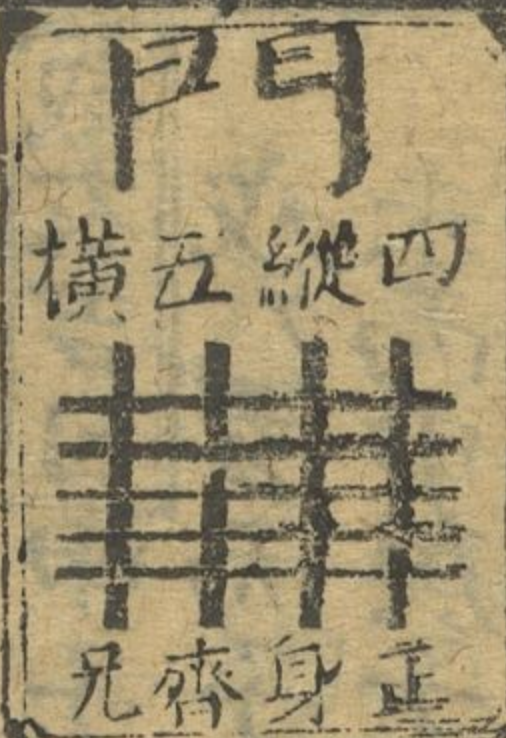 門
四縱五橫
正身齊兄